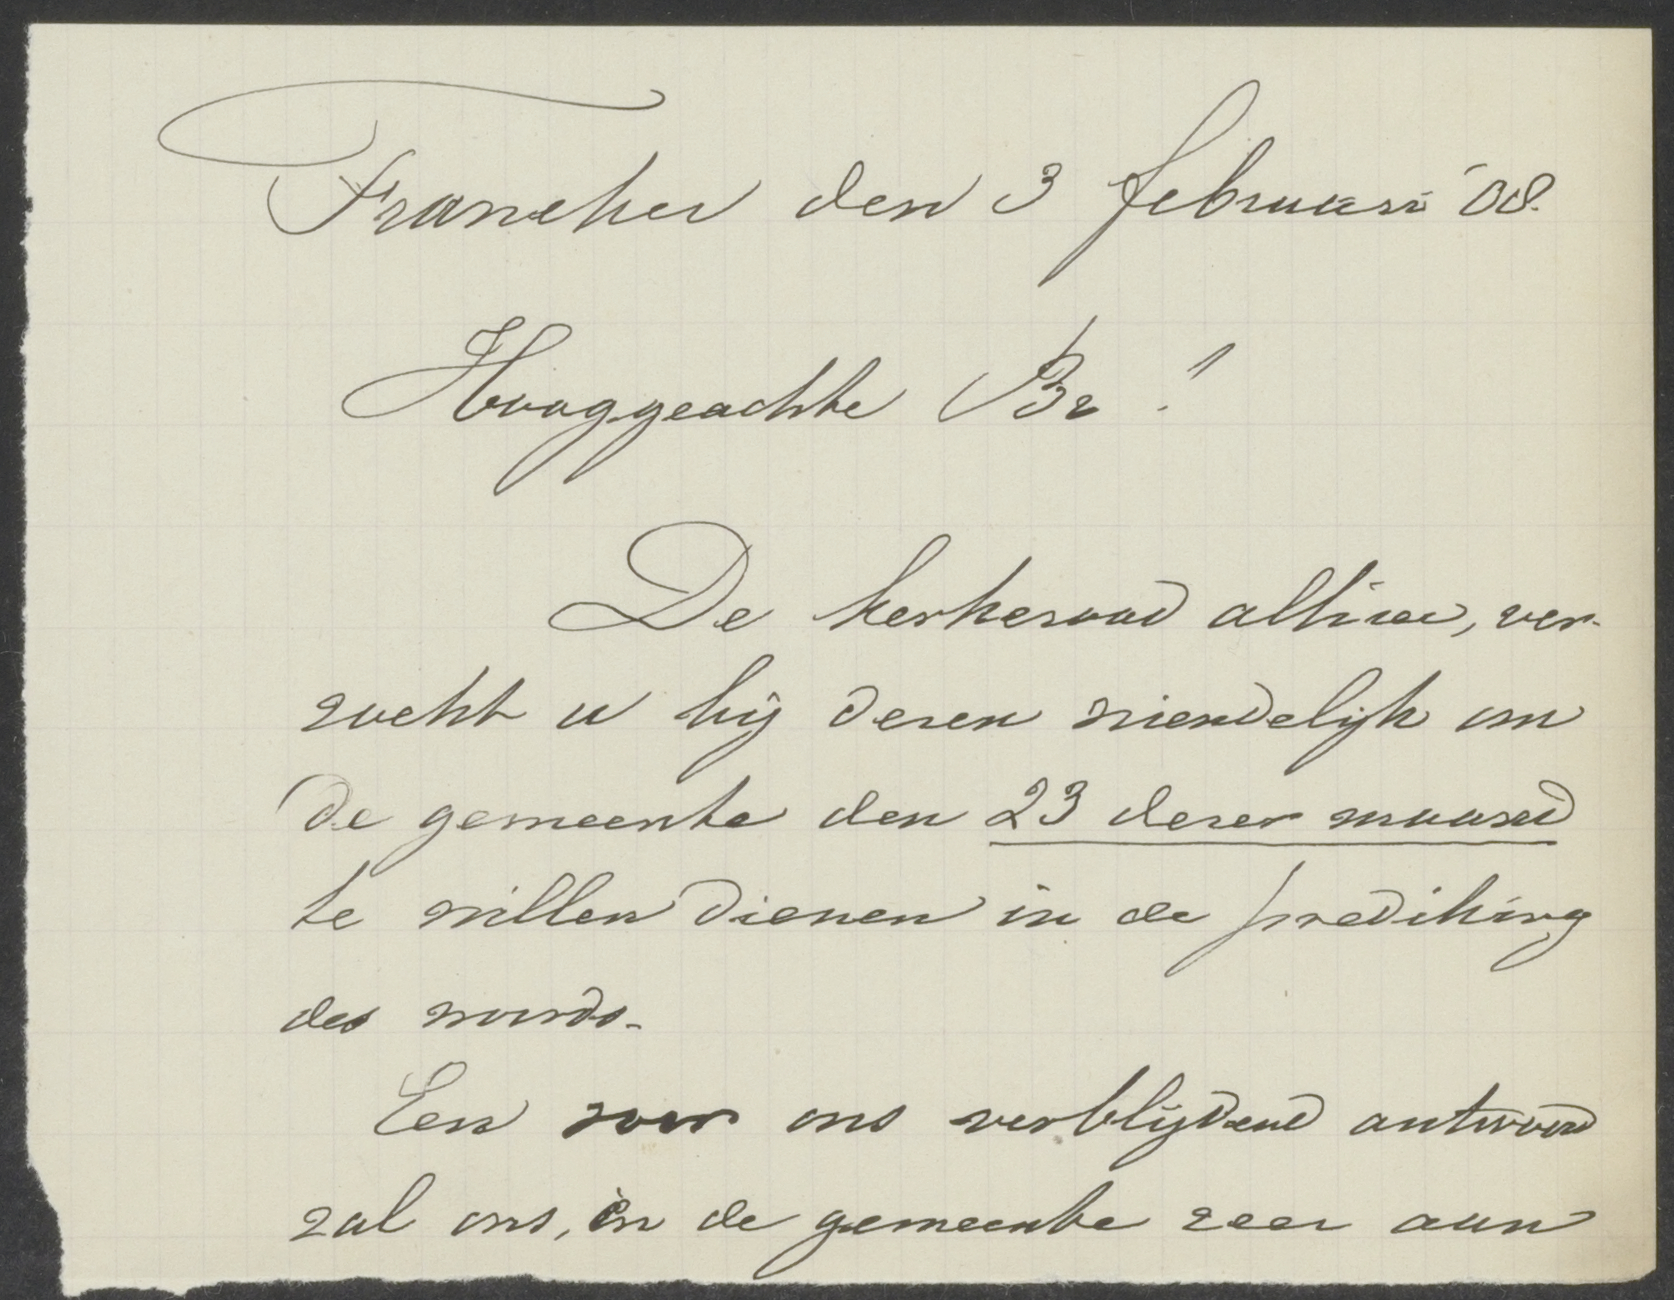 Franeker den 3 februari '08.
Hooggeachte Br!
De kerkeraad alhier, ver-
zoekt u bij dezen vriendelijk om
de gemeente den 23 dezer maand
te willen dienen in de prediking
des woords.
Een voor ons verblijdend antwoord
zal ons, èn de gemeente zeer aan